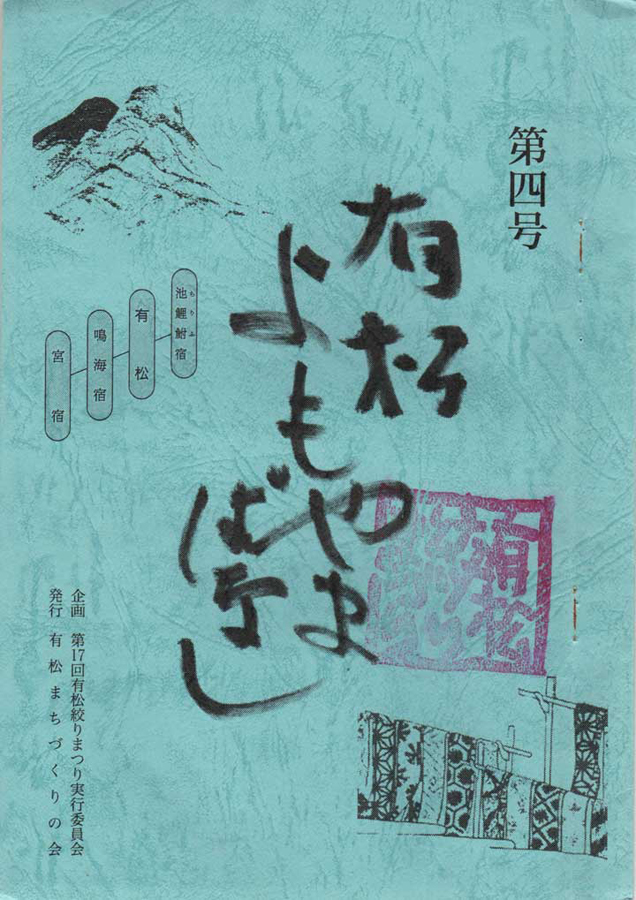 第四号
有松
よもやま
ばなし
池鯉鮒宿
ちりふ
有松
鳴海宿
宮宿
有松
企画 第17回有松絞りまつり実行委員会
発行 有松まちづくりの会